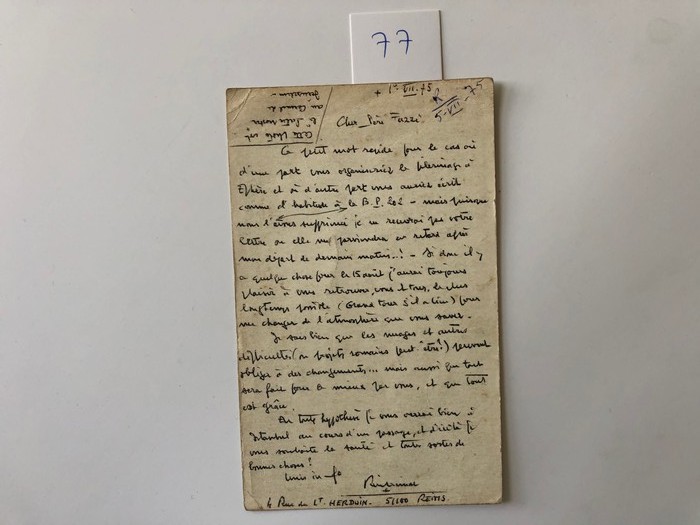 77
+ 1er VII. 75
R
5-VII-75
Cette photo est
au
Cher Père Fazzi
Ce petit mot rapide pour le cas où
d'une part vous organiseriez le pèlerinage à
Ephèse et où d'autre part vous auriez écrit
comme d'habitude à la B.P. 202 - mais puisque
nous l'avons supprimée je ne recevrai pas votre
lettre ou elle me parviendra en retard après
mon départ de demain matin..! - Si donc il y
a quelque chose pour le 15 août j'aurai toujours
plaisir à vous retrouver, vous et tous, le plus
longtemps possible (Grand tour s'il a lieu) pour
me changer de l'atmosphère que vous savez.
Je sais bien que les nuages et autres
difficultés (ou projets romains peut être?) peuvent
obliger à des changements... mais aussi que tout
sera fait pour le mieux par vous, et que tout
est grâce.
En toute hypothèse je vous verrai bien à
Istanbul au cours d'un passage, et d'ici là je
vous souhaite la santé et toutes sortes de
bonnes choses!
4 Rue du Lt. HERDUIN. 51100 REIMS